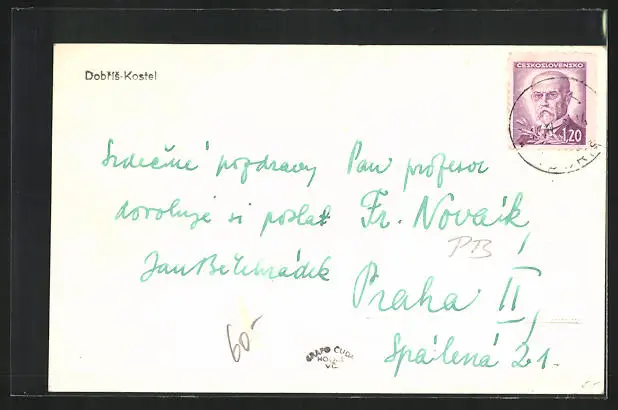 Dobříš-Kostel
ČESKOSLOVENSKO
1,20
Srdečné pozdravy
dovoluje si poslat
Jan Bělehrádek
Pan profesor
Fr. Novák,
PB
Praha II,
Spálená 21.
60-
GRAFO ČUDA
HOLICE
V Č.